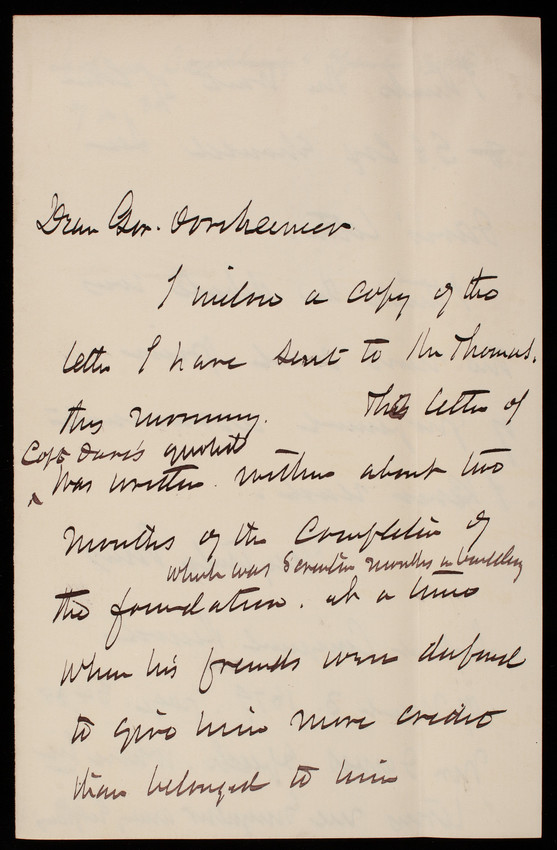 Dear Gov. Dorsheimer
I inclose a copy of the
letter I have sent to Mr Thomas.
this morning. This letter of
Capt Davis quoted
was written within about two
months of the completion of
which was seventeen months in building
the foundation. at a time
when his friends were disposed
to give him more credit
than belonged to him